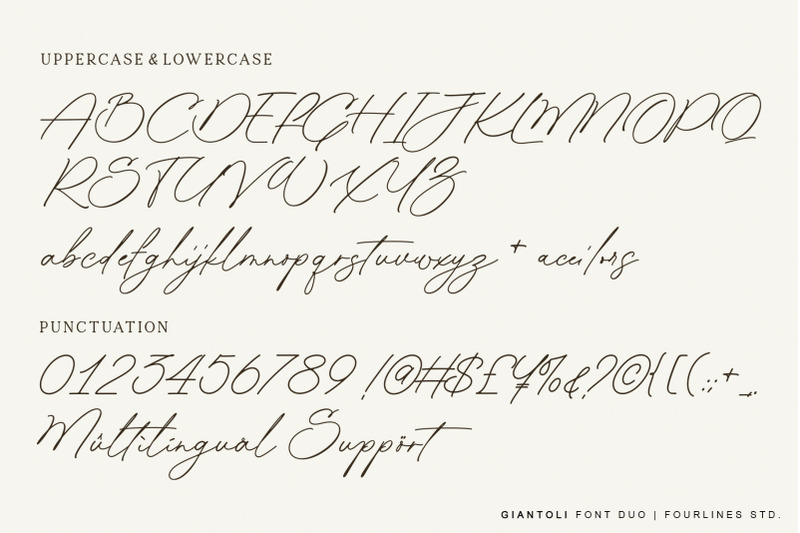 UPPERCASE & LOWERCASE
ABCDEFGHIJKLMNOPQ
RSTUVWXYZ
abcdefghijklmnopqrstuvwxyz + aceilors
PUNCTUATION
0123456789 !@#$£¥%&?©{[(:;+-.
Mûltilínguàl Suppört
GIANTOLI FONT DUO | FOURLINES STD.